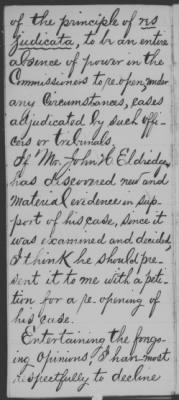 of the principle of res
judicata, to be an entire
absence of power in the
Commissioners to re-open, under
any Circumstances, cases
adjudicated by such offi-
cers or tribunals.
If Mr. John H Eldredge,
has discovered new and
material evidence in sup-
port of his case, since it
was examined and decided,
I think he should pre-
sent it to me with a peti-
tion for a re-opening of
his case.
Entertaining the forego-
ing opinions, I have most
respectfully to decline